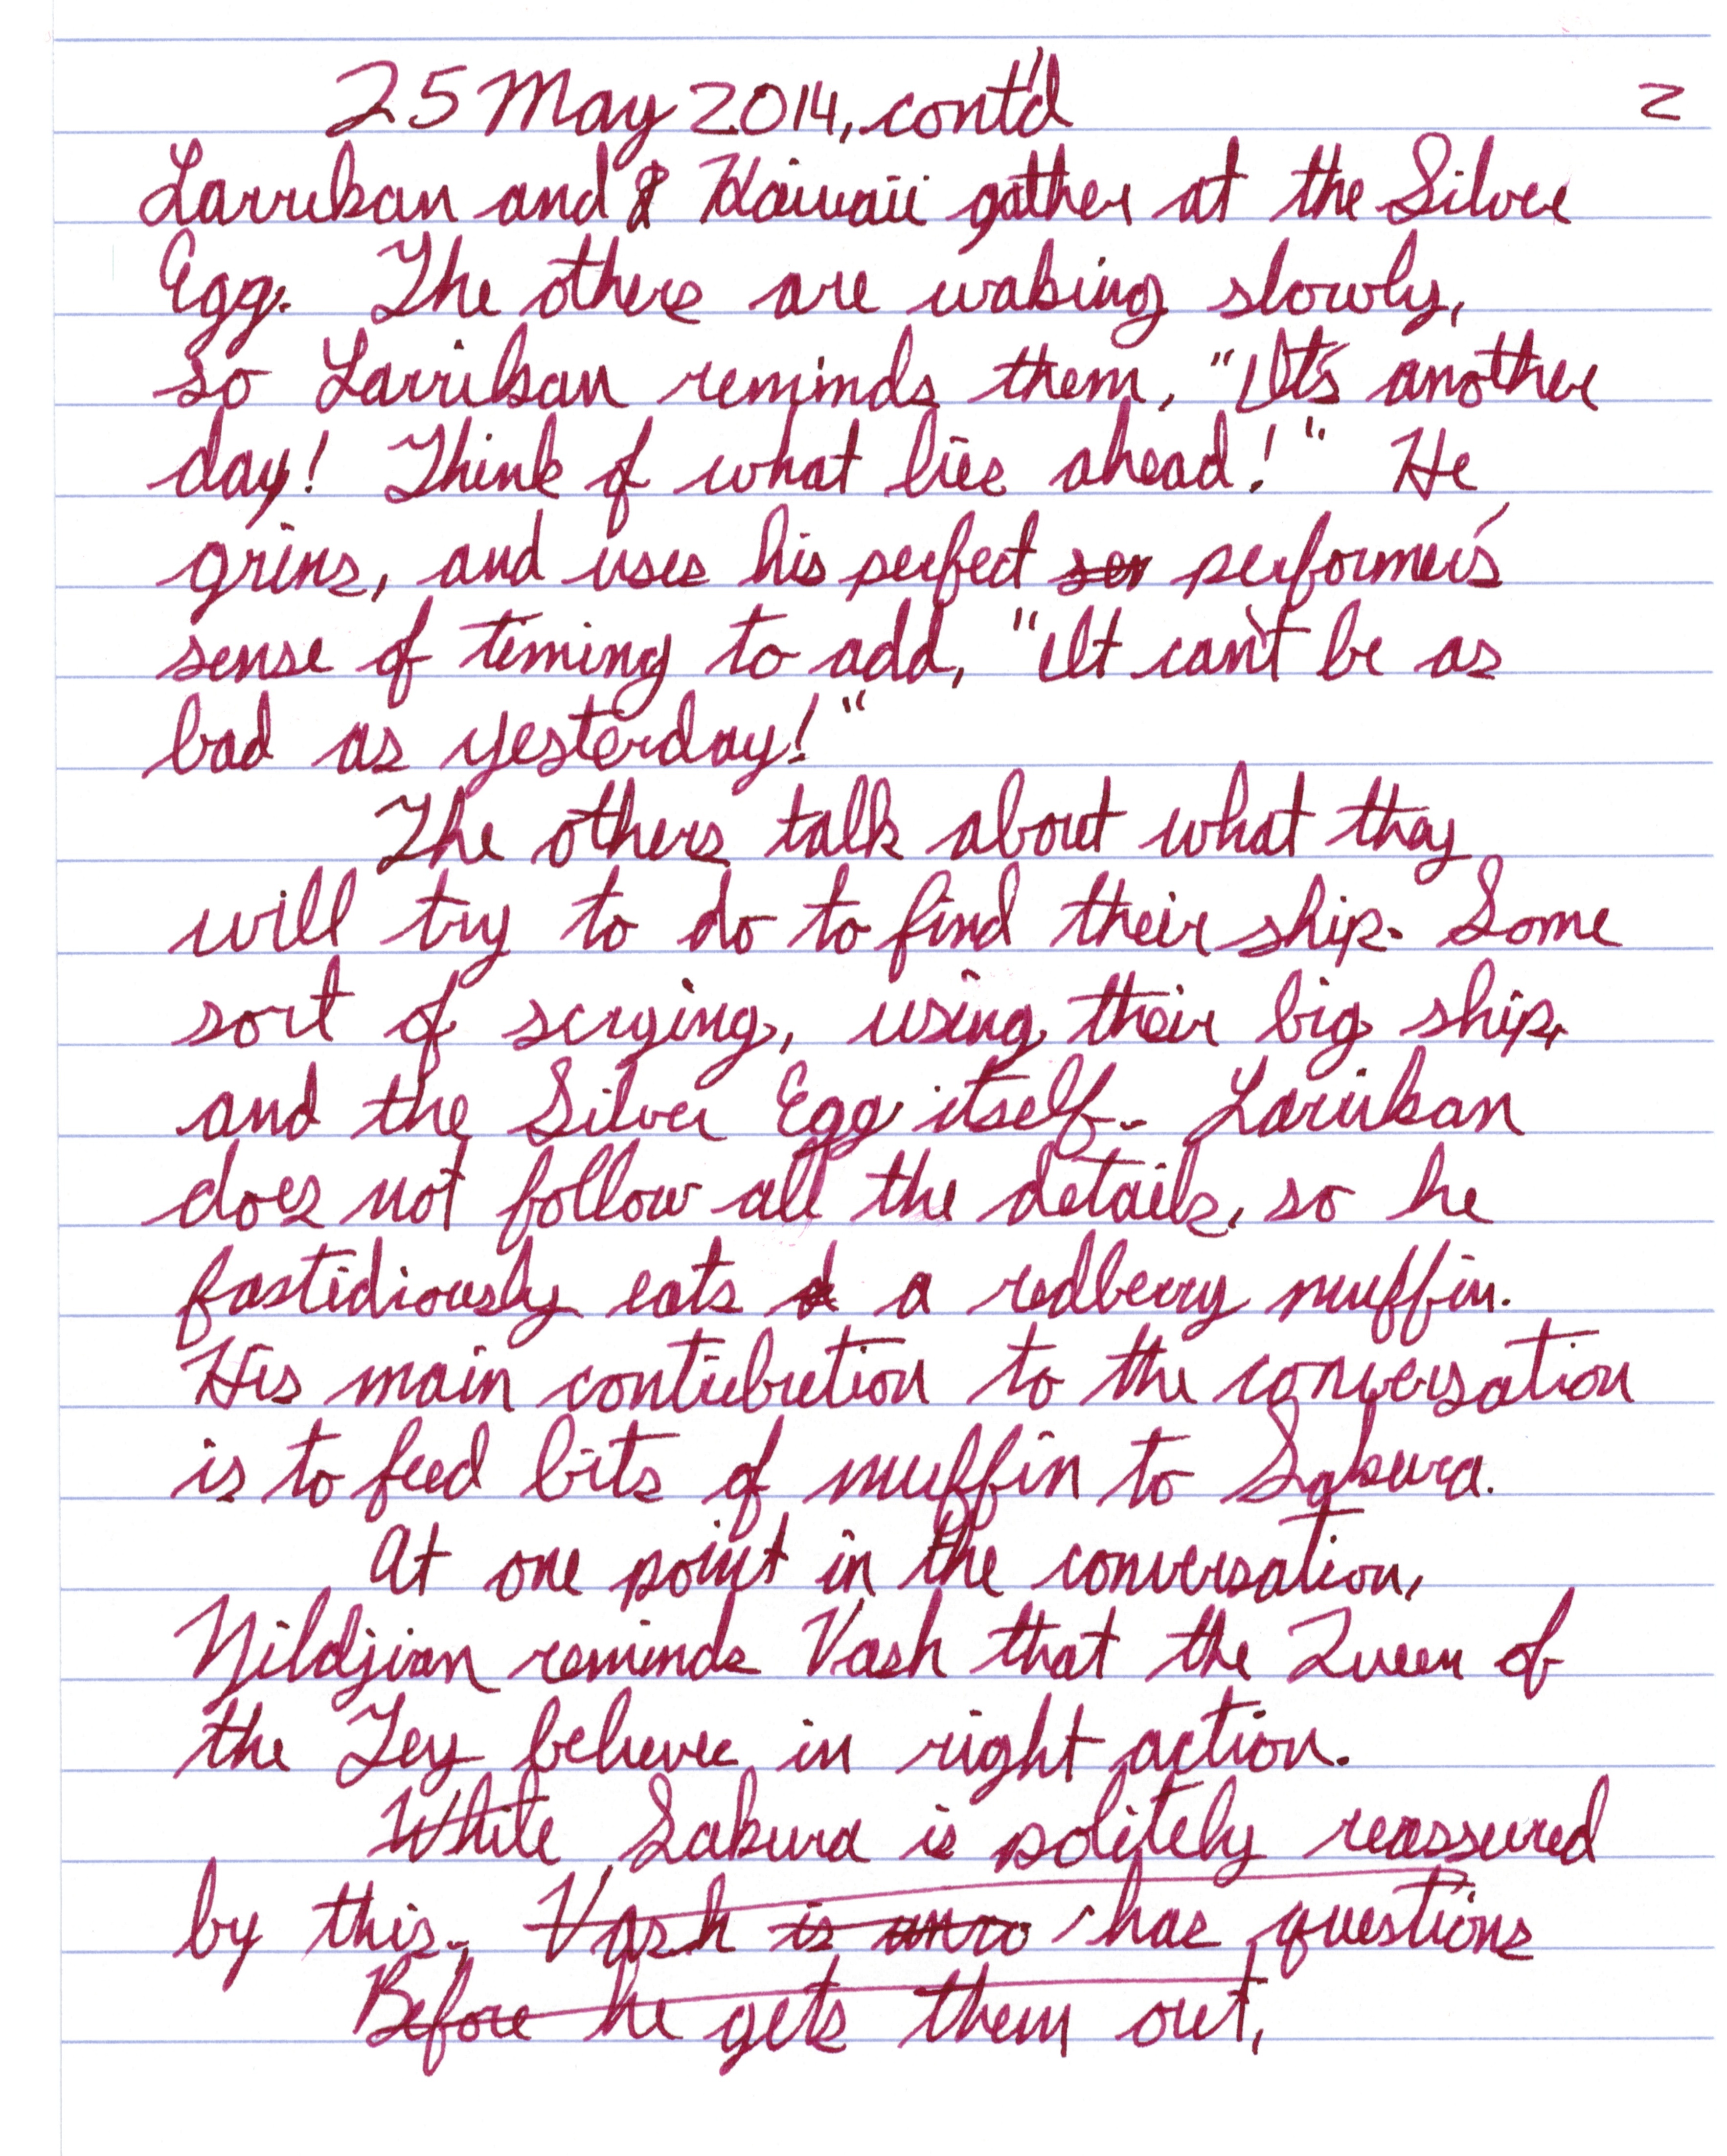 25 May 2014, cont'd 2
Larrikan and & Kaiwaii gather at the Silver
Egg. The others are waking slowly,
so Larrikan reminds them, "It's another
day! Think of what lies ahead!" He
grins, and uses his perfect sen performer's
sense of timing to add, "It can't be as
bad as yesterday!"
The others talk about what they
will try to do to find their ship. Some
sort of scrying, using their big ship,
and the Silver Egg itself. Larrikan
does not follow all the details, so he
fastidiously eats a redberry muffin.
His main contribution to the conversation
is to feed bits of muffin to Sakura.
At one point in the conversation,
Nildjian reminds Vash that the Queen of
the Ley believes in right action.
While Sakura is politely reassured
by this, Vash is unco has questions
Before he gets them out,